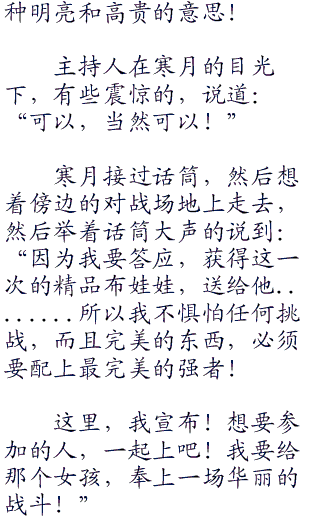 种明亮和高贵的意思！
主持人在寒月的目光
下，有些震惊的，说道：
“可以，当然可以！”
寒月接过话筒，然后想
着傍边的对战场地上走去，
然后举着话筒大声的说到：
“因为我要答应，获得这一
次的精品布娃娃，送给他..
......所以我不惧怕任何挑
战，而且完美的东西，必须
要配上最完美的强者！
这里，我宣布！想要参
加的人，一起上吧！我要给
那个女孩，奉上一场华丽的
战斗！”